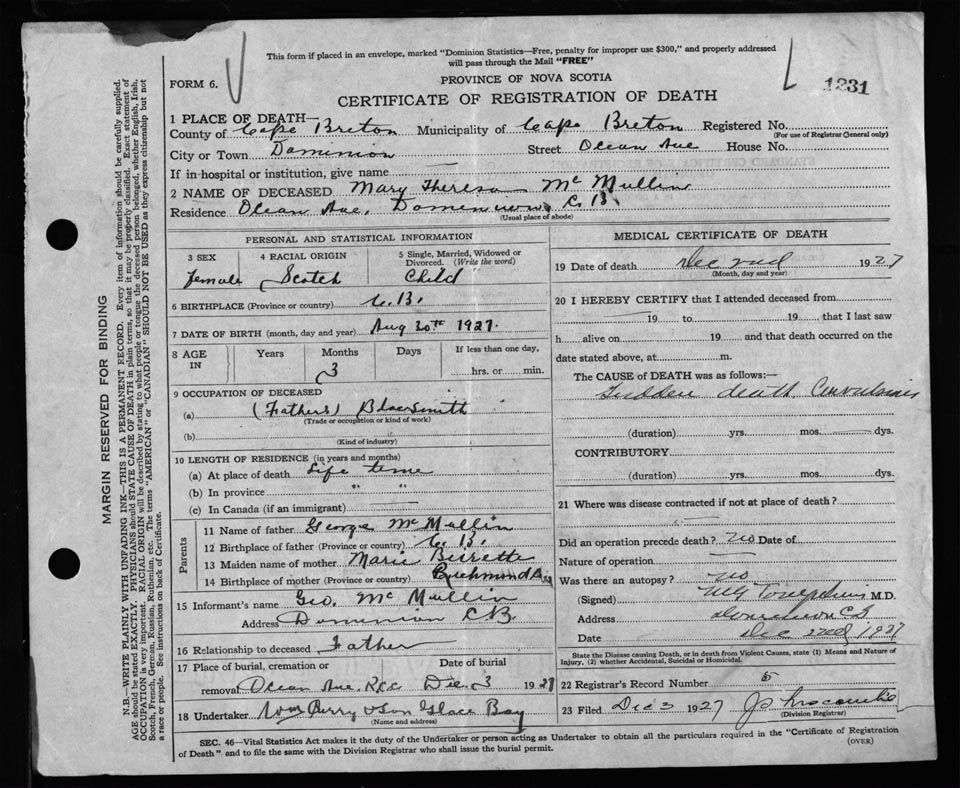 This form if placed in an envelope, marked "Dominion Statistics—Free, penalty for improper use $300," and properly addressed
will pass through the Mail "FREE"
FORM 6.
PROVINCE OF NOVA SCOTIA
1231
CERTIFICATE OF REGISTRATION OF DEATH
1 PLACE OF DEATH—
County of Cape Breton Municipality of Cape Breton Registered No.
(For use of Registrar General only)
City or Town Dominion Street Ocean Ave House No.
If in hospital or institution, give name —
2 NAME OF DECEASED Mary Theresa McMullin
Residence Ocean Ave. Dominion C. B.
(Usual place of abode)
PERSONAL AND STATISTICAL INFORMATION
3 SEX 4 RACIAL ORIGIN 5 Single, Married, Widowed or
Divorced. (Write the word)
Female Scotch Child
6 BIRTHPLACE (Province or country) C. B.
7 DATE OF BIRTH (month, day and year) Aug 30th 1927.
8 AGE IN Years Months Days If less than one day,
3 hrs. or min.
9 OCCUPATION OF DECEASED
(a) (Fathers) Blacksmith
(Trade or occupation or kind of work)
(b)
(Kind of industry)
10 LENGTH OF RESIDENCE (in years and months)
(a) At place of death Life time
(b) In province " "
(c) In Canada (if an immigrant)
Parents
11 Name of father George McMullin
12 Birthplace of father (Province or country) C. B.
13 Maiden name of mother Marie
14 Birthplace of mother (Province or country) Richmond
15 Informant's name Geo. McMullin
Address Dominion C.B.
16 Relationship to deceased Father
17 Place of burial, cremation or Date of burial
removal Ocean Ave. Dec. 3 1927
18 Undertaker Wm Perry & Son Glace Bay
(Name and address)
MEDICAL CERTIFICATE OF DEATH
19 Date of death Dec 2nd 1927
(Month, day and year)
20 I HEREBY CERTIFY that I attended deceased from
19 to 19, that I last saw
h alive on 19 and that death occurred on the
date stated above, at m.
The CAUSE of DEATH was as follows:—
Sudden death Convulsions
(duration) yrs. mos. dys.
CONTRIBUTORY
(duration) yrs. mos. dys.
21 Where was disease contracted if not at place of death?
Did an operation precede death? No Date of
Nature of operation —
Was there an autopsy? no
(Signed) M.D.
Address Dominion C B
Date Dec 2nd 1927
State the Disease causing Death, or in death from Violent Causes, state (1) Means and Nature of
Injury, (2) whether Accidental, Suicidal or Homicidal.
22 Registrar's Record Number 5
23 Filed Dec 3 1927
(Division Registrar)
SEC. 46—Vital Statistics Act makes it the duty of the Undertaker or person acting as Undertaker to obtain all the particulars required in the "Certificate of Registration
of Death" and to file the same with the Division Registrar who shall issue the burial permit.
(OVER)
MARGIN RESERVED FOR BINDING
N.B.—WRITE PLAINLY WITH UNFADING INK—THIS IS A PERMANENT RECORD. Every item of information should be carefully supplied.
AGE should be stated EXACTLY. PHYSICIANS should STATE CAUSE OF DEATH in plain terms, so that it may be properly classified. Exact statement of
OCCUPATION is very important. RACIAL ORIGIN will be described by stating to what people or tongue the deceased person belonged, whether English, Irish,
Scotch, French, German, Russian, Ruthenian, etc. The terms "AMERICAN" or "CANADIAN" SHOULD NOT BE USED as they express citizenship but not
a race or people. See instructions on back of Certificate.